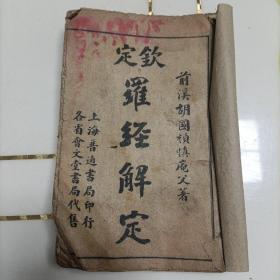 欽定
前溪胡國楨慎庵父著
羅經解定
上海普通書局印行
各省會文堂書局代售